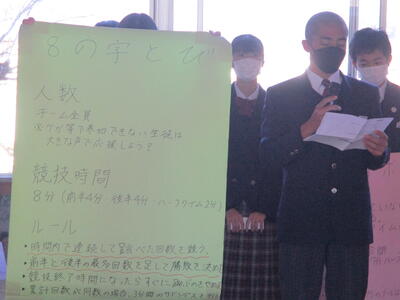 8の字とび
人数
チーム全員
※ケガ等で参加できない生徒は
大きな声で応援しよう?
競技時間
8分(前半4分・後半4分・ハーフタイム2分)
ルール
・時間内で連続して跳べた回数を競う。
・前半と後半の最多回数を足して勝敗を決め
・競技終了時間になったらすぐに跳ぶのをやめ
・累計回数が同数の場合、3分間の